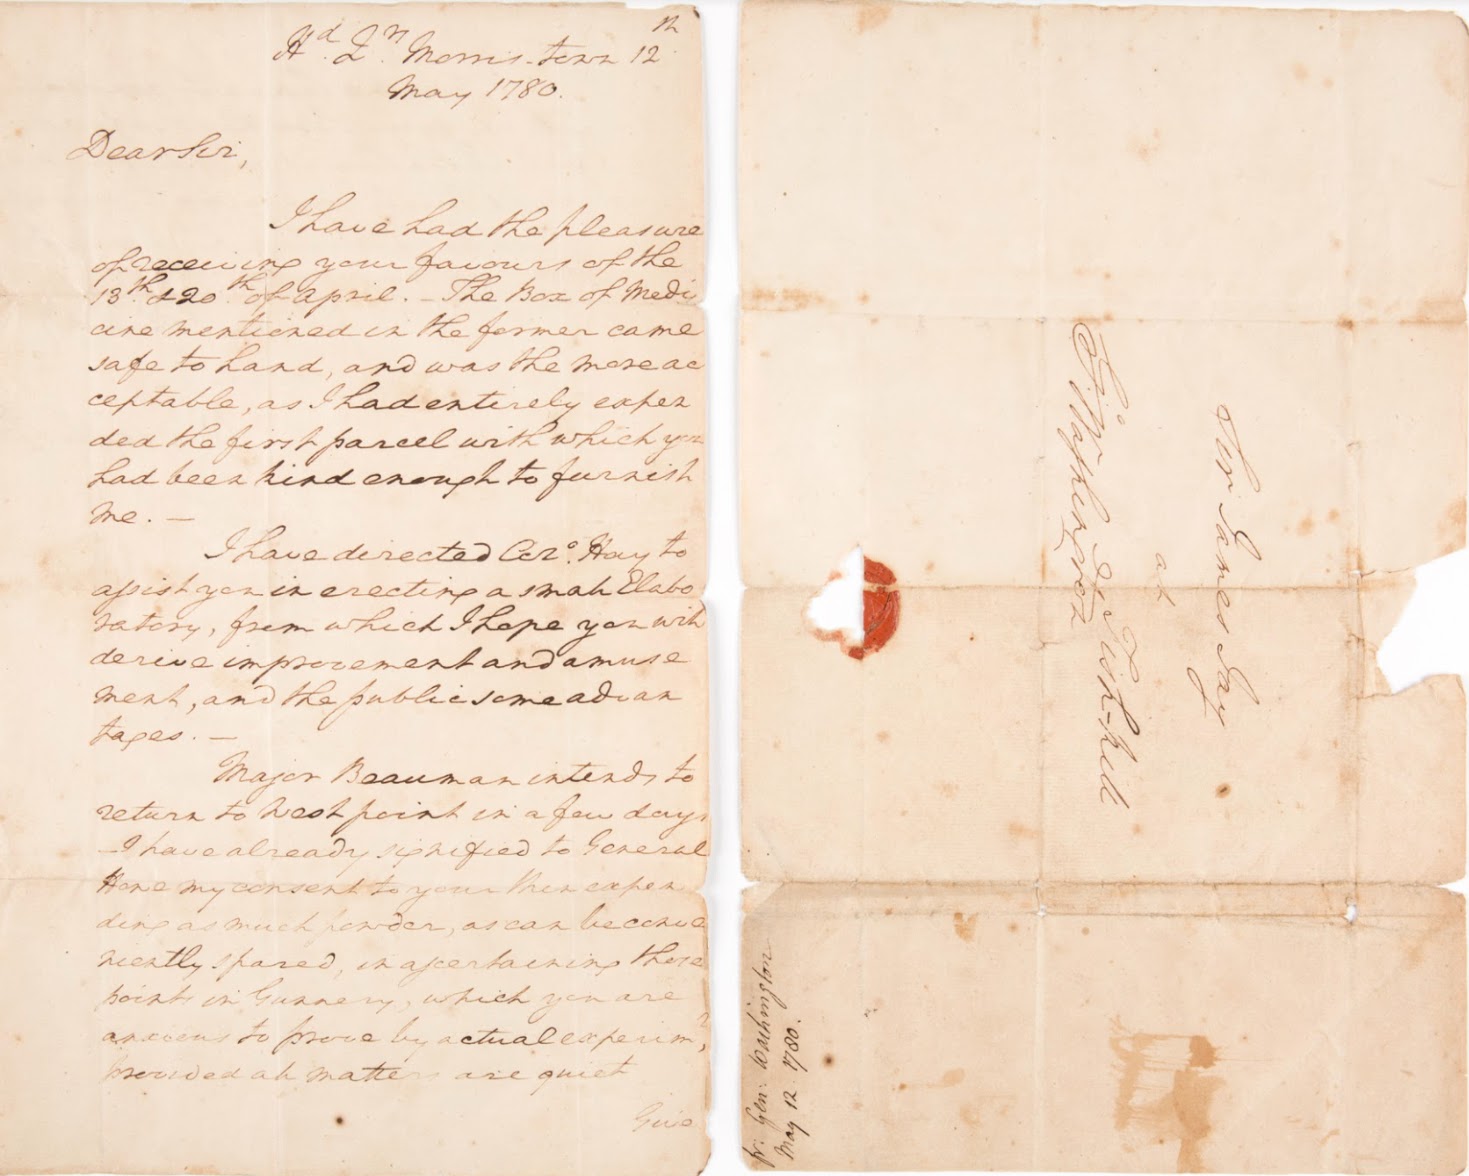 Hd. Qrs. Morris-town 12th
May 1780.
Dear Sir,
I have had the pleasure
of receiving your favours of the
13th & 20th of April. – The Box of Medi
cine mentioned in the former came
safe to hand, and was the more ac
ceptable, as I had entirely expen
ded the first parcel with which you
had been kind enough to furnish
me. –
I have directed Colo. Hay to
assist you in erecting a small Elabo
ratory, from which I hope you will
derive improvement and amuse
ment, and the public some advan
tages. –
Major Beauman intends to
return to West point in a few days
– I have already signified to General
Howe my consent to your then expen
ding as much powder, as can be conve
niently spared, in ascertaining those
points in Gunnery, which you are
anxious to prove by actual experimt,
provided all matters are quiet
Give
Sir James Jay
at
Fish-kill
Go: Washington
fr. Gen: Washington
May 12. 1780.